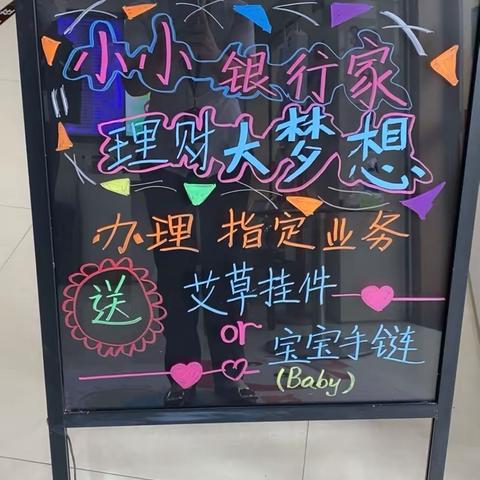 小小银行家
理财大梦想
办理 指定业务
送
艾草挂件
or
宝宝手链
(Baby)